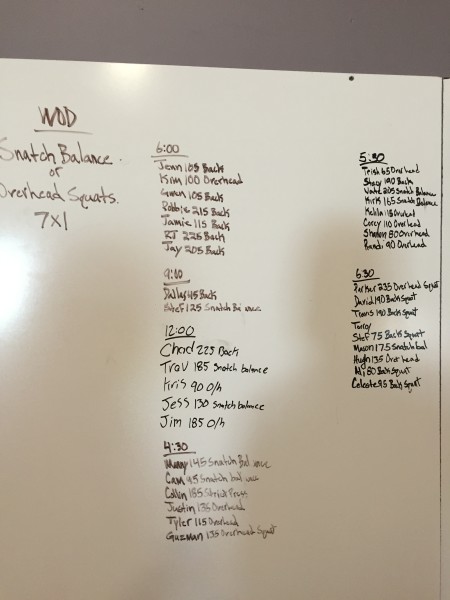 WOD
Snatch Balance.
or
Overhead Squats.
7x1
6:00
Jenn 105 Back
Kim 100 Overhead
Gwen 105 Back
Robbie 215 Back
Jamie 115 Back
RJ 225 Back
Jay 205 Back
9:00
Dallas 45 Back
Stef 125 Snatch Bal ance
12:00
Chad 225 Back
Trav 185 Snatch balance
Kris 90 O/h
Jess 130 Snatch balance
Jim 185 O/h
4:30
145 Snatch Bal ance
Cam 95 Snatch bal ance
Collin 185 Strict Press
Justin 135 Overhead
Tyler 115 Overhead
Guzman 135 Overhead Squat
5:30
Trish 65 Overhead
Stacy 190 Back
205 Snatch Balance
Kirk 165 Snatch Balance
Overhead
Corey 110 Overhead
80 Overhead
Randi 90 Overhead
6:30
Parker 235 Overhead Squat
David 190 Back Squat
Travis 190 Back Squat
Torey
Stef 75 Back Squat
Mason 175 Snatch bal
Hugh 135 Over head
80 Back Squat
Celeste 95 Back Squat